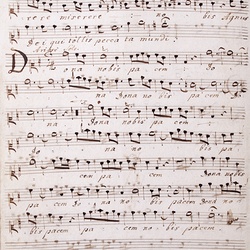 rere miserere no bis Agnus
Dei qui tollis peccata mundi
Dona nobis pacem do
na Dona nobis pacem
do na no bis pa
cem pa cem Dona nobis
pacem do na no bis pa cem Dona no
bis pacem pa cem no bis pacem